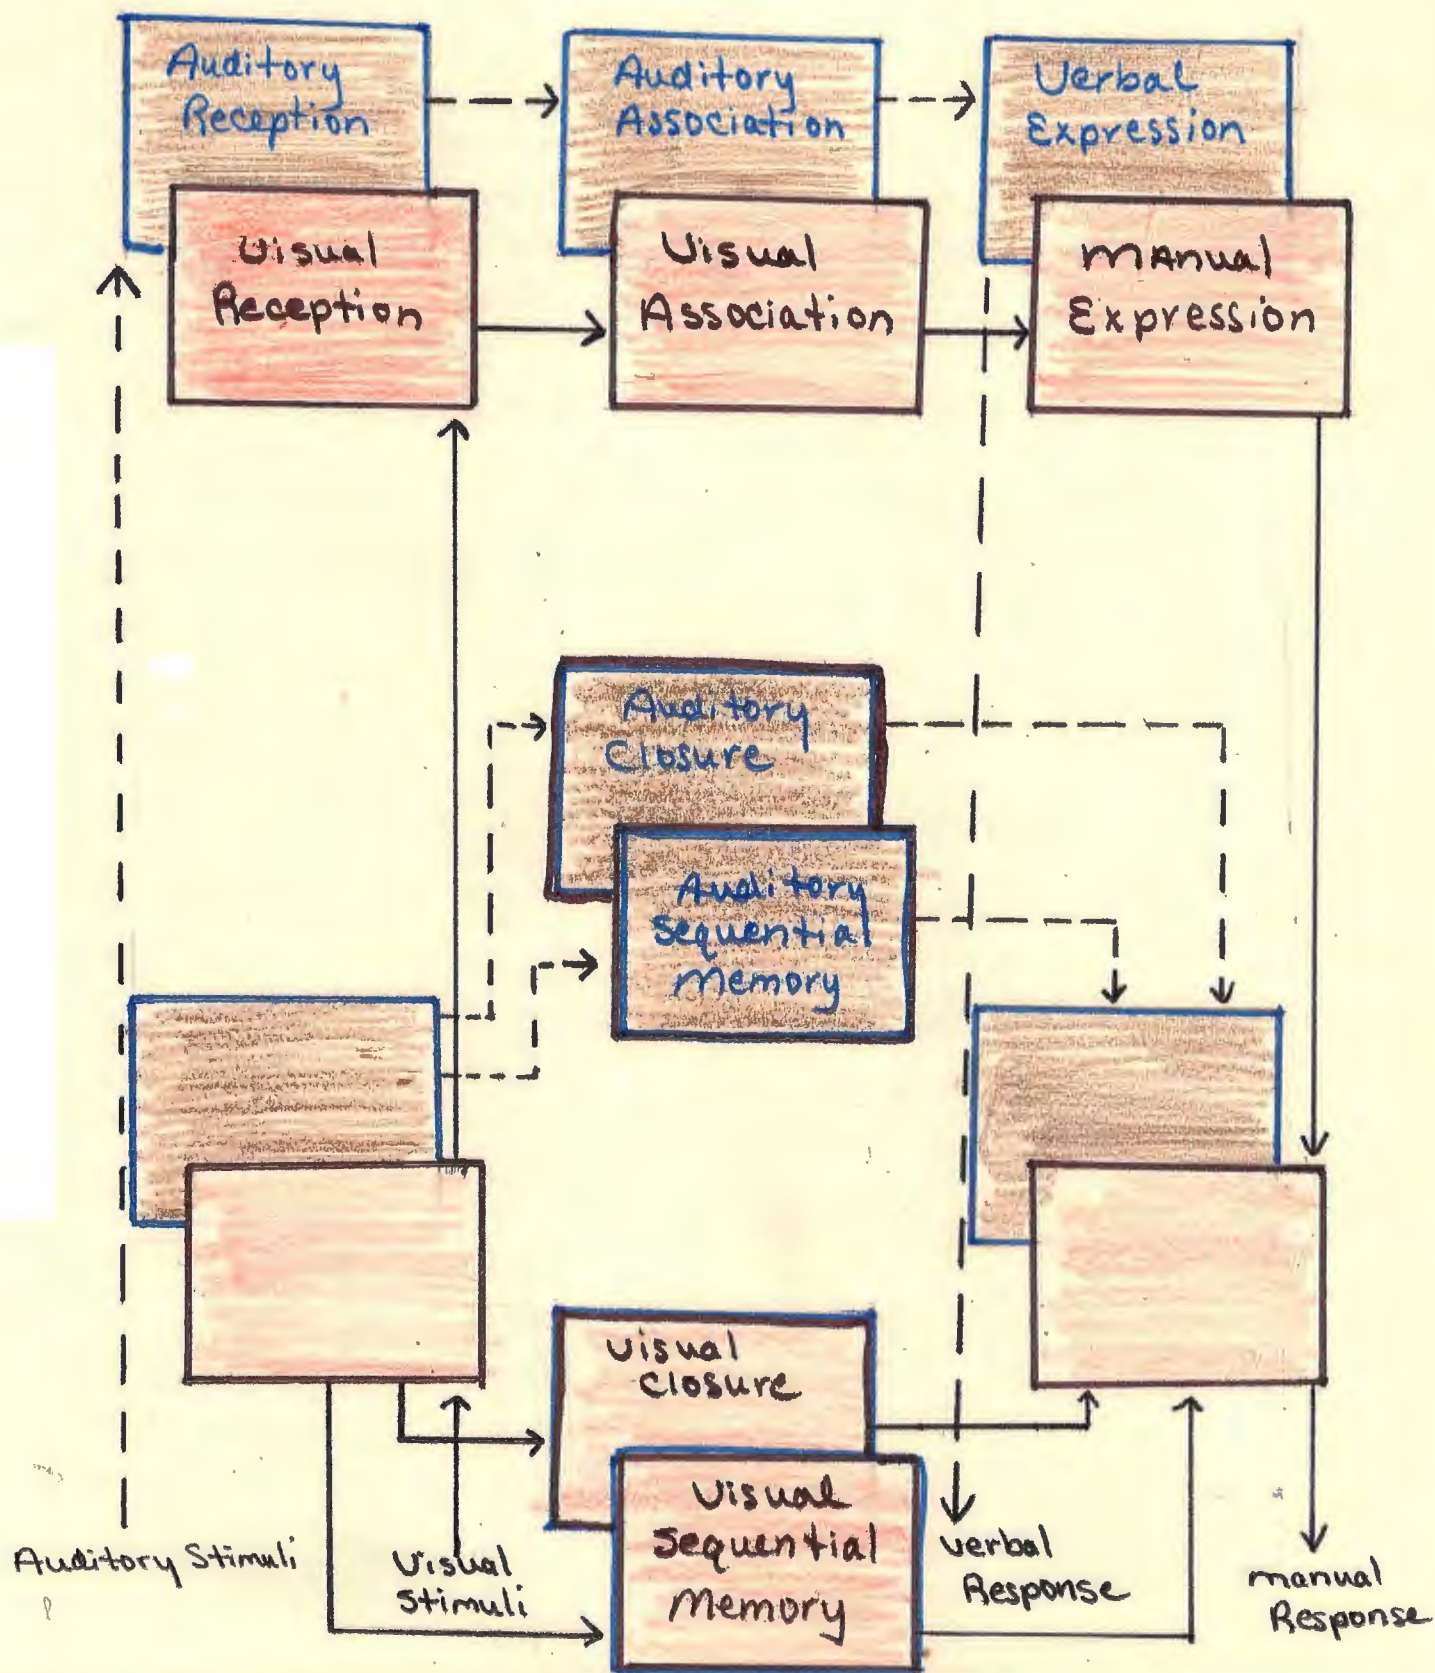 Auditory
Reception
Auditory
Association
Verbal
Expression
Visual
Reception
Visual
Association
Manual
Expression
Auditory
Closure
Auditory
Sequential
Memory
Visual
Closure
Visual
Sequential
Memory
Auditory Stimuli
Visual
Stimuli
Verbal
Response
Manual
Response